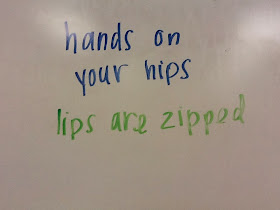 hands on
your hips
lips are zipped